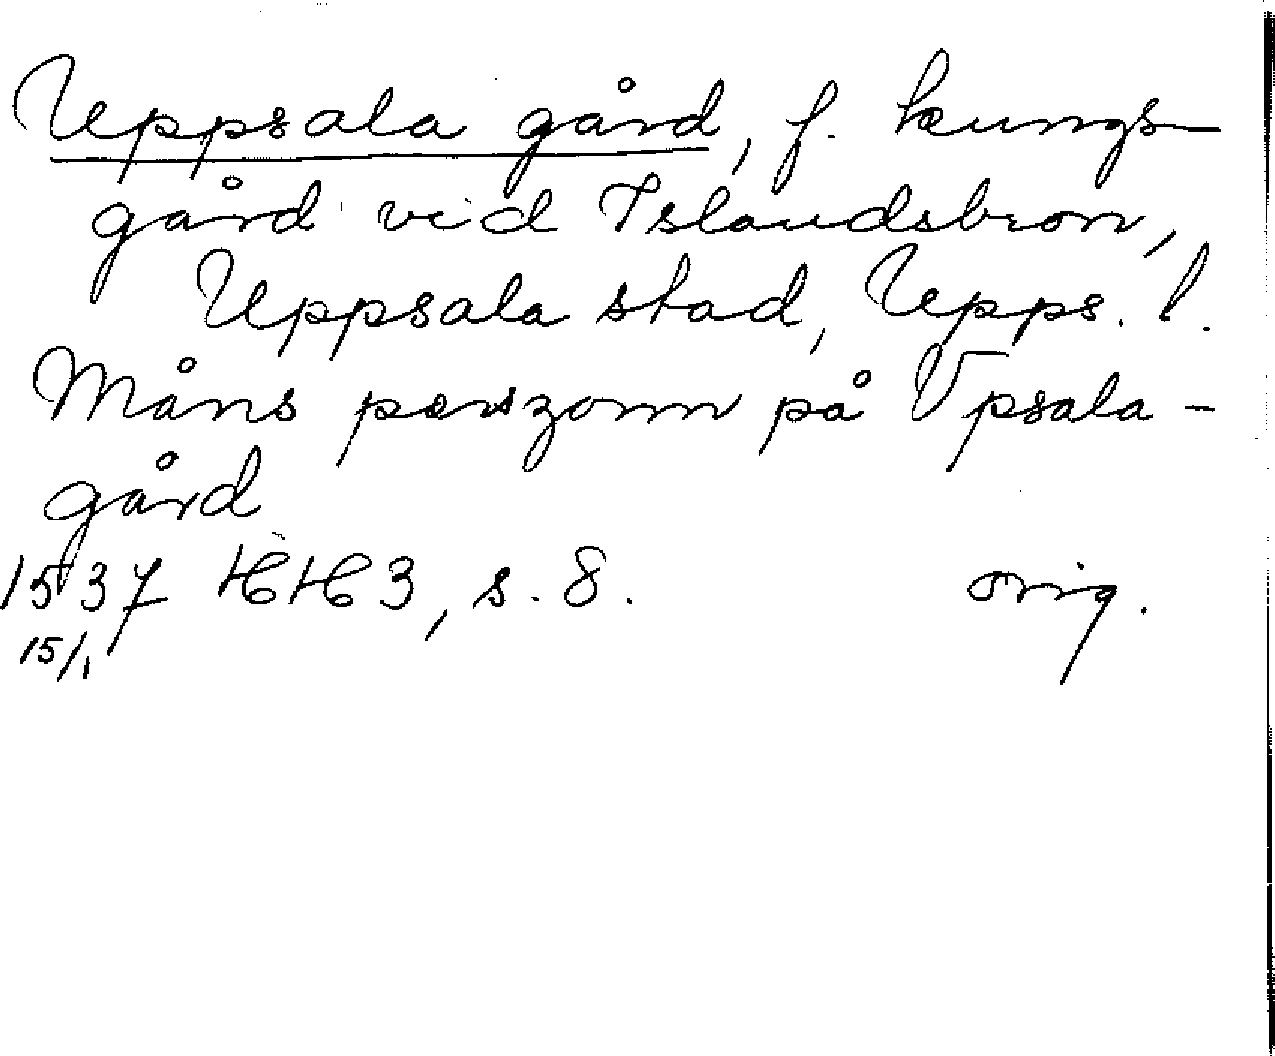 Uppsala gård, f. kungs-
gård vid Islandsbron,
Uppsala stad, Upps. l.
Måns perszonn på Vpsala-
gård
1537 HH 3, s. 8. orig.
15/1